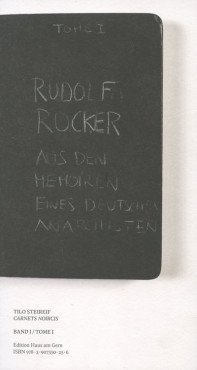 TOME I
RUDOLF
ROCKER
AUS DEN
MEMOIREN
EINES DEUTSCHEN
ANARCHISTEN
TILO STEIREIF
CARNETS NOIRCIS
BAND I / TOME I
Edition Haus am Gern
ISBN 978-3-907330-25-6